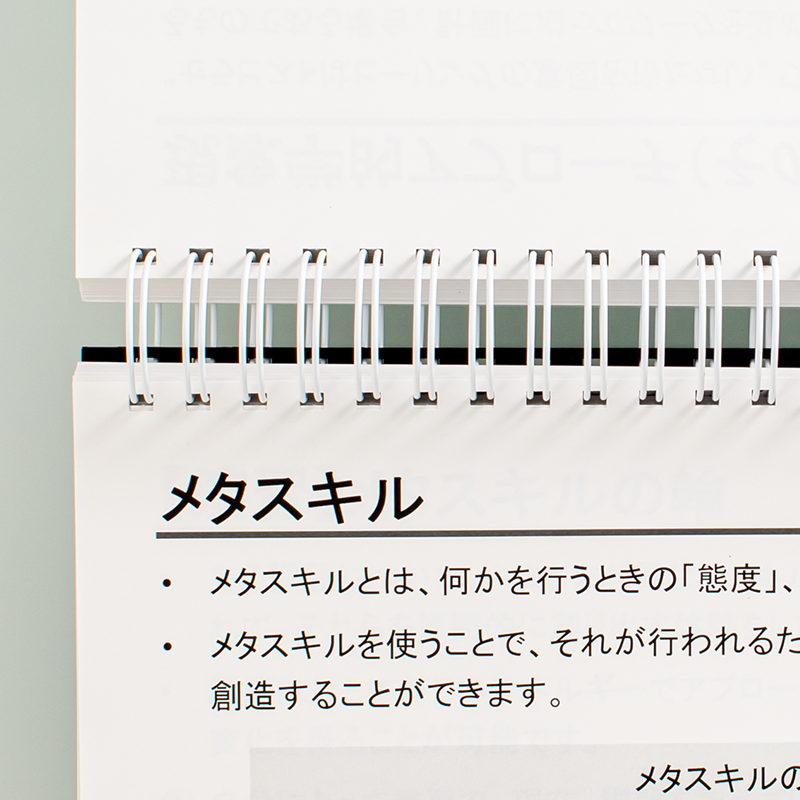 メタスキル
• メタスキルとは、何かを行うときの「態度」、
• メタスキルを使うことで、それが行われるた
創造することができます。
メタスキルの